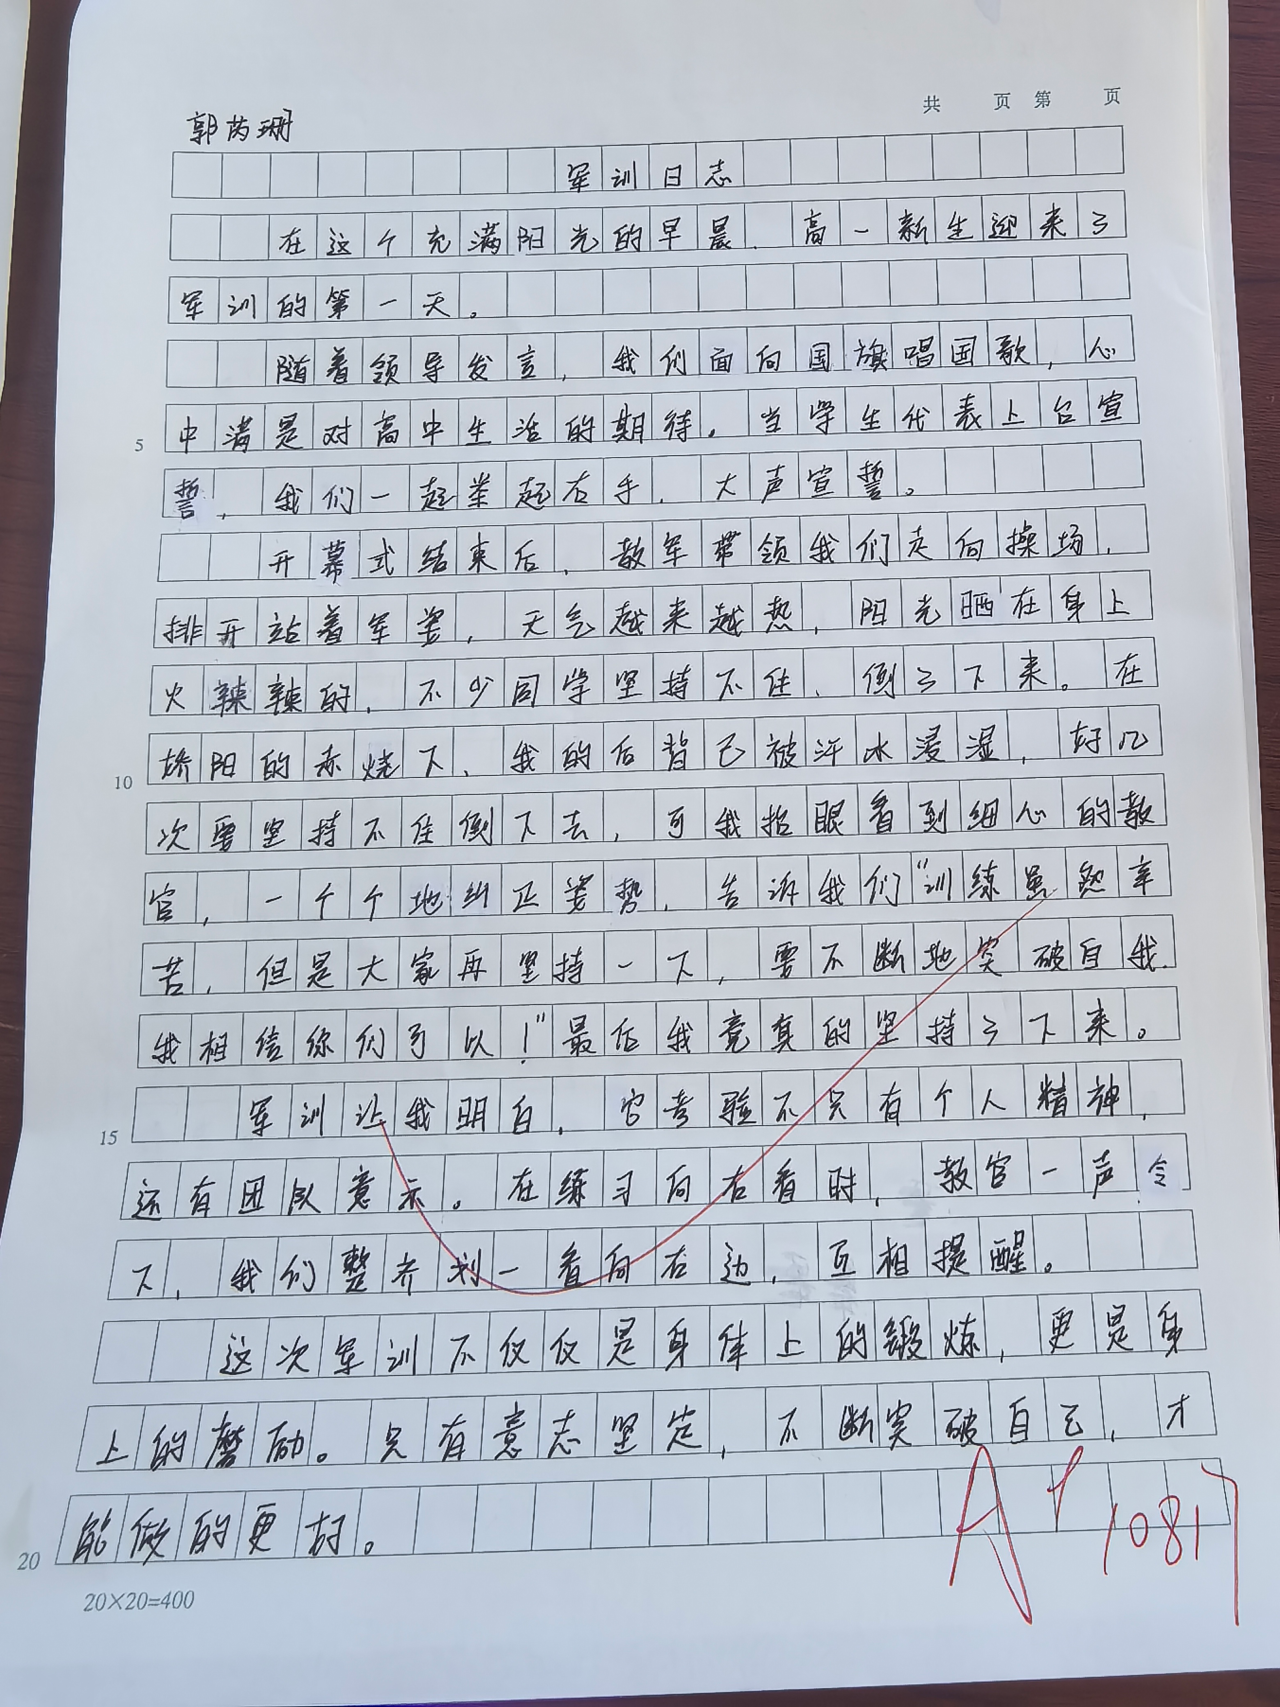 共 页 第 页
郭芮珊
军训日志
在这个充满阳光的早晨，高一新生迎来了
军训的第一天。
随着领导发言，我们面向国旗唱国歌，心
5 中满是对高中生活的期待。当学生代表上台宣
誓，我们一起举起右手，大声宣誓。
开幕式结束后，教军带领我们走向操场，
排开站着军姿，天气越来越热，阳光晒在身上
火辣辣的，不少同学坚持不住，倒了下来。在
10 娇阳的赤烧下，我的后背已被汗水浸湿，好几
次要坚持不住倒下去，可我抬眼看到细心的教
官，一个个地纠正姿势，告诉我们“训练虽然辛
苦，但是大家再坚持一下，要不断地突破自我，
我相信你们可以！”最后我竟真的坚持了下来。
15 军训让我明白，它考验不只有个人精神，
还有团队意示。在练习向右看时，教官一声令
下，我们整齐划一看向右边，互相提醒。
这次军训不仅仅是身体上的锻炼，更是身
上的磨励。只有意志坚定，不断突破自己，才
20 能做的更好。
20×20=400
A+ 10817